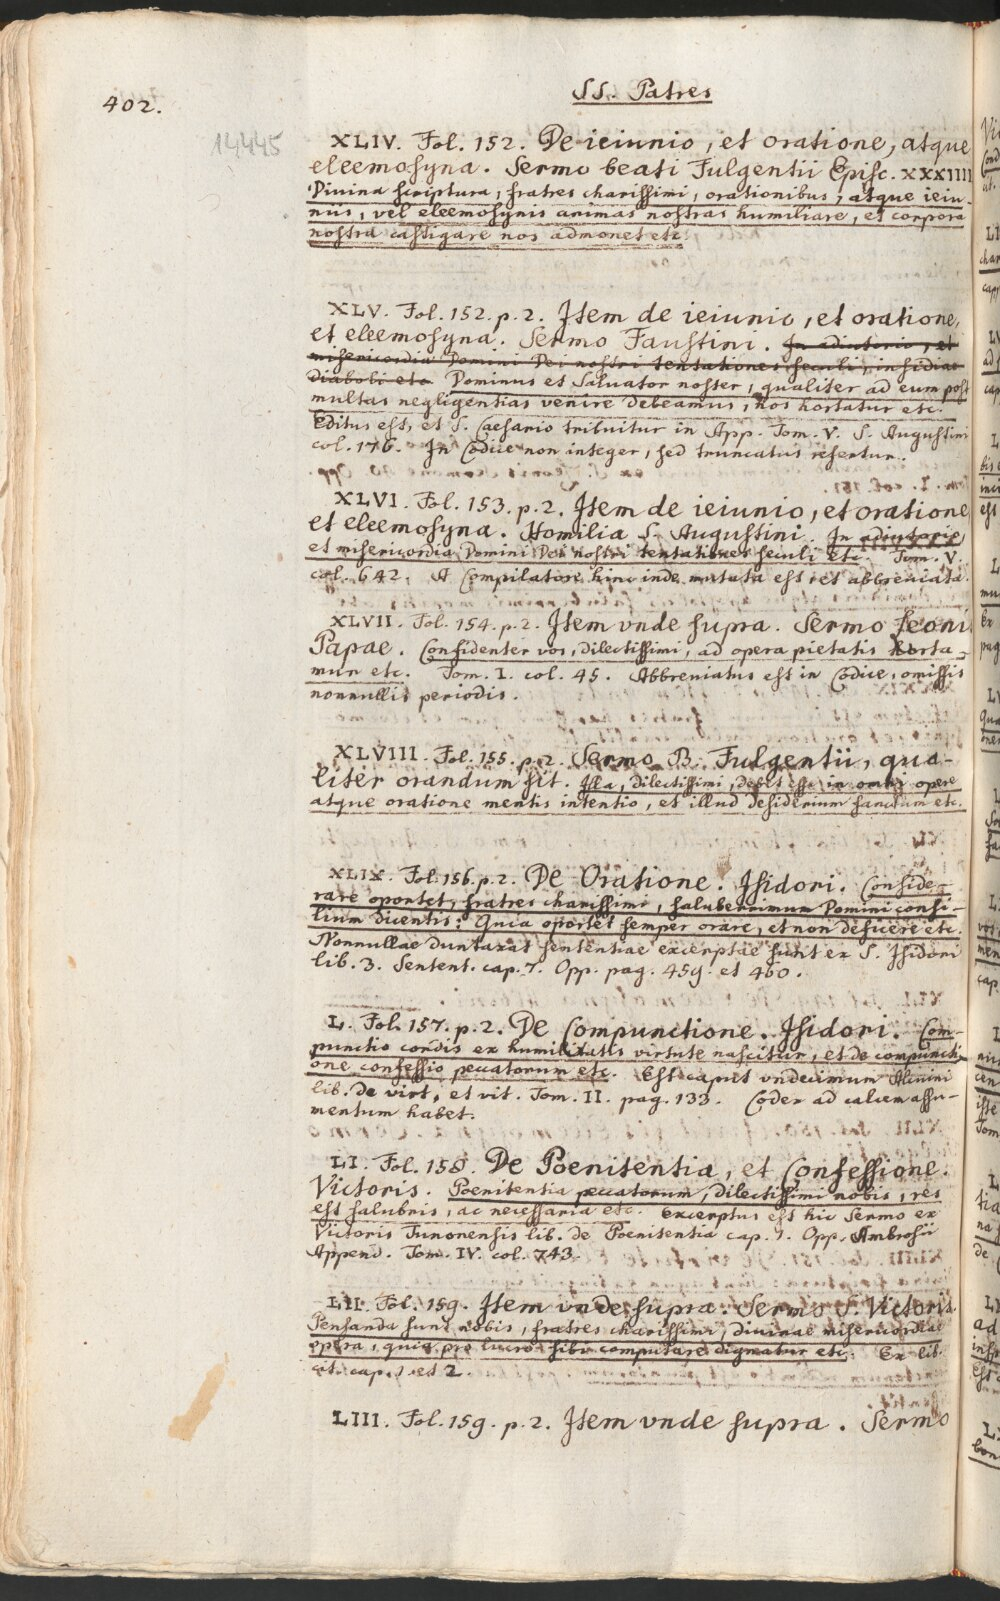 402.
SS. Patres
14445
XLIV. Fol. 152. De ieiunio, et oratione, atque
eleemosyna. Sermo beati Fulgentii Episc. XXXIIII
Divina scriptura, fratres charissimi, orationibus, atque ieiu-
niis, vel eleemosynis animas nostras humiliare, et corpora
nostra castigare nos admonet etc.
XLV. Fol. 152. p. 2. Item de ieiunio, et oratione,
et eleemosyna. Sermo Faustini. In adiutorio, et
misericordia Domini Dei nostri tentationes seculi, insidias
diaboli etc. Dominus et Salvator noster, qualiter ad eum post
multas negligentias venire debeamus, nos hortatur etc.
Editus est, et S. Caesario tribuitur in App. Tom. V. S. Augustini
col. 176. In Codice non integer, sed truncatus refertur.
XLVI. Fol. 153. p. 2. Item de ieiunio, et oratione
et eleemosyna. Homilia S. Augustini. In adiutorio,
et misericordia Domini Dei nostri tentationes seculi etc. Tom. V.
col. 642. A Compilatore hinc inde mutata est et abbreviata.
XLVII. Fol. 154. p. 2. Item vnde supra. Sermo Leoni
Papae. Confidenter vos, dilectissimi, ad opera pietatis horta-
mur etc. Tom. I. col. 45. Abbreviatus est in Codice, omissis
nonnullis periodis.
XLVIII. Fol. 155. p. 2. Sermo B. Fulgentii, qua-
liter orandum sit. Illa, dilectissimi, debet esse in omni opere
atque oratione mentis intentio, et illud desiderium sanctum etc.
XLIX. Fol. 156. p. 2. De Oratione. Isidori. Conside-
rare oportet, fratres charissimi, saluberrimum Domini consi-
lium dicentis: Quia oportet semper orare, et non deficere etc.
Nonnullae duntaxat sententiae excerptae sunt ex S. Isidori
lib. 3. Sentent. cap. 7. Opp. pag. 459. et 460.
L. Fol. 157. p. 2. De Compunctione. Isidori. Com-
punctio cordis ex humilitatis virtute nascitur, et de compuncti-
one confessio peccatorum etc. Est caput vndecimum Alcuini
lib. de virt, et vit. Tom. II. pag. 133. Codex ad calcem assu-
mentum habet.
LI. Fol. 158. De Poenitentia, et Confessione.
Victoris. Poenitentia peccatorum, dilectissimi nobis, res
est salubris, ac necessaria etc. Excerptus est hic Sermo ex
Victoris Tunonensis lib. de Poenitentia cap. 1. Opp. Ambrosii
Append. Tom. IV. col. 743.
LII. Fol. 159. Item vnde supra. Sermo S. Victoris.
Pensanda sunt nobis, fratres charissimi, divinae misericordiae
opera, quia pro lucro sibi computare dignatur etc. Ex lib.
cit. cap. 1 et 2.
LIII. Fol. 159. p. 2. Item vnde supra. Sermo